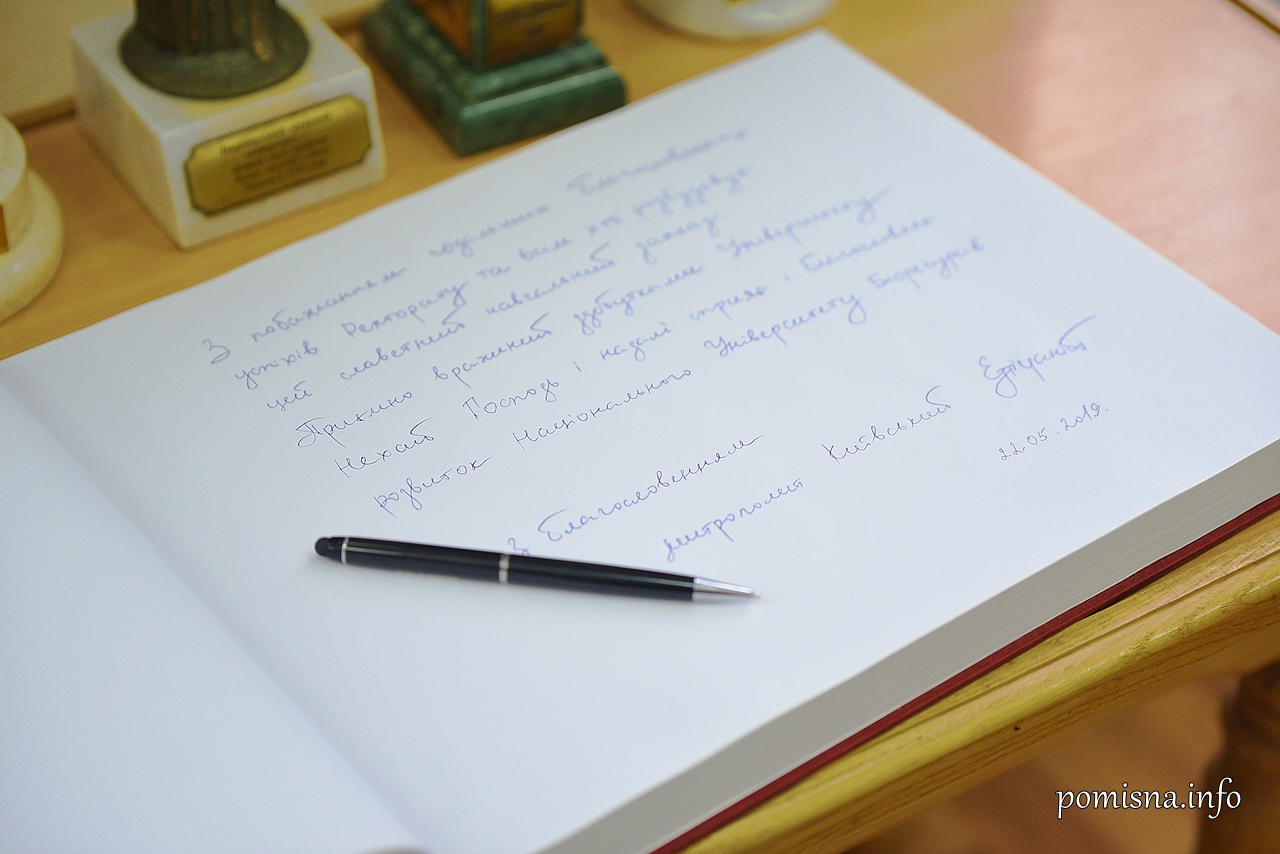 З побажанням подальших благословенних
успіхів Ректорату та всім хто розбудовує
цей славетний навчальний заклад.
Приємно вражений здобутками Університету
Нехай Господь і надалі сприяє і благословляє
розвиток Національного Університету Біоресурсів
З благословенням
митрополит Київський Епіфаній
22.05.2019.
pomisna.info